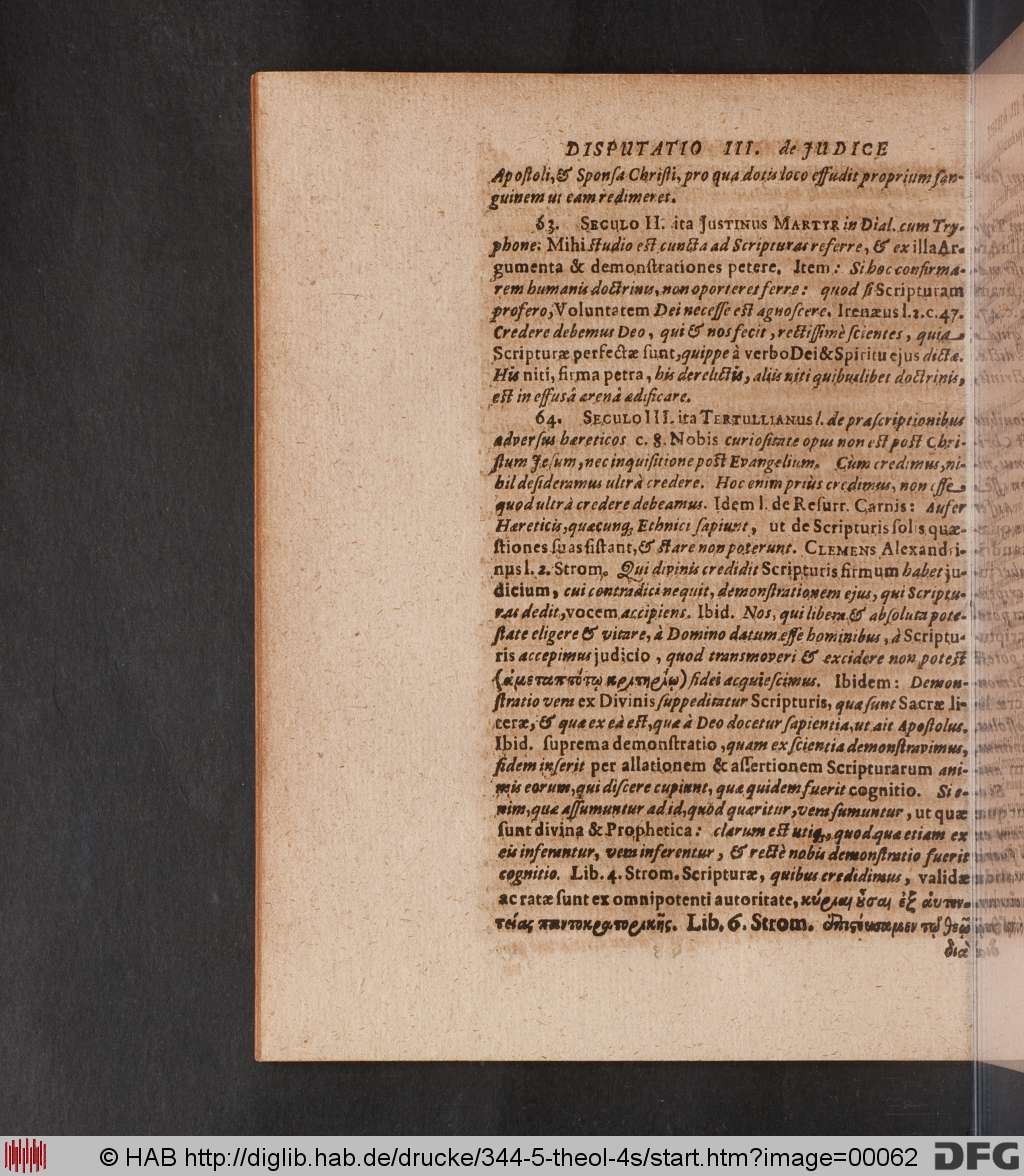 DISPUTATIO III. de JUDICE
Apoſtoli, & Sponſa Chriſti, pro qua dotis loco effudit proprium ſan-
guinem ut eam redimeret.
63. SECULO II. ita JUSTINUS MARTYR in Dial. cum Try-
phone: Mihi ſtudio eſt cuncta ad Scripturas referre, & ex illa Ar-
gumenta & demonſtrationes petere. Item: Si hoc confirma-
rem humanis doctrinis, non oporteret ferre: quod ſi Scripturam
profero, Voluntatem Dei neceſſe eſt agnoſcere. Irenæus l. 2. c. 47.
Credere debemus Deo, qui & nos fecit, rectiſſimè ſcientes, quia
Scripturæ perfectæ ſunt, quippe à verbo Dei & Spiritu ejus dictæ.
His niti, firma petra, his derelictis, aliis niti quibuslibet doctrinis,
eſt in effusâ arenâ ædificare.
64. SECULO III. ita TERTULLIANUS l. de præſcriptionibus
adverſus hæreticos c. 8. Nobis curioſitate opus non eſt poſt Chri-
ſtum Jeſum, nec inquiſitione poſt Evangelium. Cùm credimus, ni-
hil deſideramus ultrà credere. Hoc enim priùs credimus, non eſſe
quod ultrà credere debeamus. Idem l. de Reſurr. Carnis: Aufer
Hæreticis, quæcunq; Ethnici ſapiunt, ut de Scripturis ſolis quæ-
ſtiones ſuas ſiſtant, & ſtare non poterunt. CLEMENS Alexandri-
nus l. 2. Strom. Qui divinis credidit Scripturis firmum habet ju-
dicium, cui contradici nequit, demonſtrationem ejus, qui Scriptu-
ras dedit, vocem accipiens. Ibid. Nos, qui libera & abſoluta pote-
ſtate eligere & vitare, à Domino datum eſſe hominibus, à Scriptu-
ris accepimus judicio, quod transmoveri & excidere non poteſt
(ἀμεταπτότῳ κριτηρίῳ) fidei acquieſcimus. Ibidem: Demon-
ſtratio vera ex Divinis ſuppeditatur Scripturis, quæ ſunt Sacræ li-
teræ, & quæ ex eâ eſt, quæ à Deo docetur ſapientia, ut ait Apoſtolus.
Ibid. ſuprema demonſtratio, quam ex ſcientia demonſtravimus,
fidem inſerit per allationem & aſſertionem Scripturarum ani-
mis eorum, qui diſcere cupiunt, quæ quidem fuerit cognitio. Si e-
nim, quæ aſſumuntur ad id, quod quæritur, vera ſumuntur, ut quæ
ſunt divina & Prophetica: clarum eſt utiq;, quod quæ etiam ex
eis inferuntur, vera inferentur, & rectè nobis demonſtratio fuerit
cognitio. Lib. 4. Strom. Scripturæ, quibus credidimus, validæ
ac ratæ ſunt ex omnipotenti autoritate, κύριαι οὖσαι ἐξ αὐθεν-
τείας παντοκρατορικῆς. Lib. 6. Strom. ἐπιστεύσαμεν τῷ θεῷ
διὰ
© HAB http://diglib.hab.de/drucke/344-5-theol-4s/start.htm?image=00062
DFG